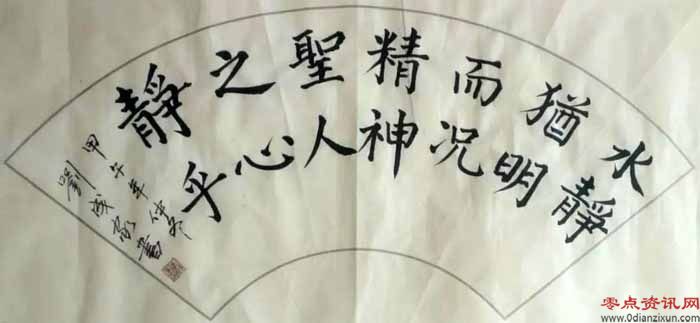 水靜
猶明
而况
精神
聖人
之心
靜乎
甲午年仲冬
劉成 書
零点资讯网
www.0dianzixun.com